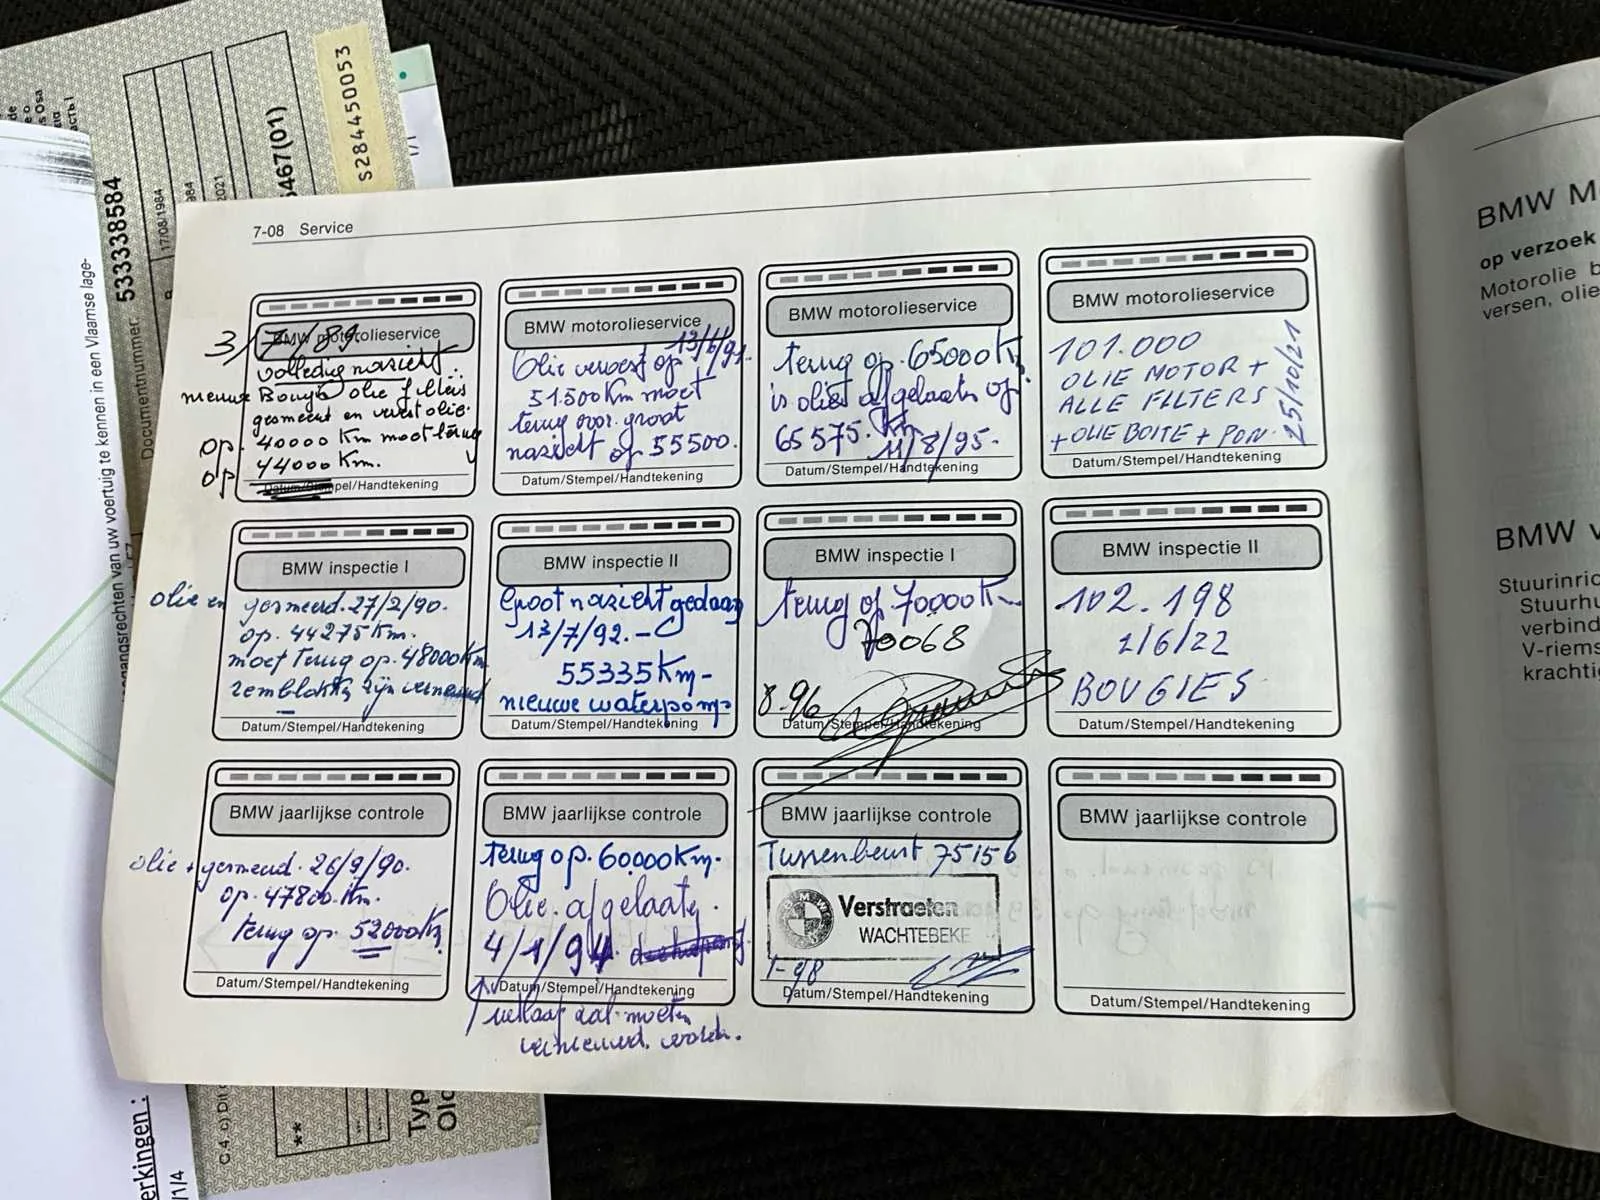 S284450053
467(01)
533338584
Documentnummer:
17/08/1984
1/1
angsrechten van uw voertuig te kennen in een Vlaamse lage-
7-08 Service
BMW motorolieservice
3/7/89
volledig nazicht
nieuwe Bougis olie filters
gesmeert en ververst olie.
op. 40000 Km moet terug
op 44000 Km.
Datum/Stempel/Handtekening
BMW motorolieservice
Olie ververst op
51500 Km moet
terug voor groot
nazicht op 55500.
Datum/Stempel/Handtekening
BMW motorolieservice
terug op. 65000 Km
is olie afgelaten op
65575. Km
11/8/95.
Datum/Stempel/Handtekening
BMW motorolieservice
101.000
OLIE MOTOR +
ALLE FILTERS
+ OLIE BOITE + PON.
25/10/21
Datum/Stempel/Handtekening
BMW inspectie I
olie en gesmeerd. 27/2/90.
op. 44275 Km.
moet terug op. 48000 Km
remblokken zijn vernieuwd
Datum/Stempel/Handtekening
BMW inspectie II
Groot nazicht gedaan
13/7/92.-
55335 Km-
nieuwe waterpomp
Datum/Stempel/Handtekening
BMW inspectie I
terug op 70000 Km
70068
8.96
Datum/Stempel/Handtekening
BMW inspectie II
102.198
1/6/22
BOUGIES
Datum/Stempel/Handtekening
BMW jaarlijkse controle
olie + gesmeerd. 26/9/90.
op. 47800 Km.
terug op 52000 Km
Datum/Stempel/Handtekening
BMW jaarlijkse controle
terug op. 60000 Km.
Olie. afgelaaten.
4/1/94
Datum/Stempel/Handtekening
uitlaat zal moeten
vernieuwd. worden.
BMW jaarlijkse controle
Tussenbeurt 75156
Verstraeten
WACHTEBEKE
1-98
Datum/Stempel/Handtekening
BMW jaarlijkse controle
Datum/Stempel/Handtekening
BMW M
op verzoek
Motorolie b
versen, olie
BMW v
Stuurinric
Stuurhu
verbind
V-riems
krachtig
erkingen :
1/4
C.4 c) Dit
**
Typ
Old